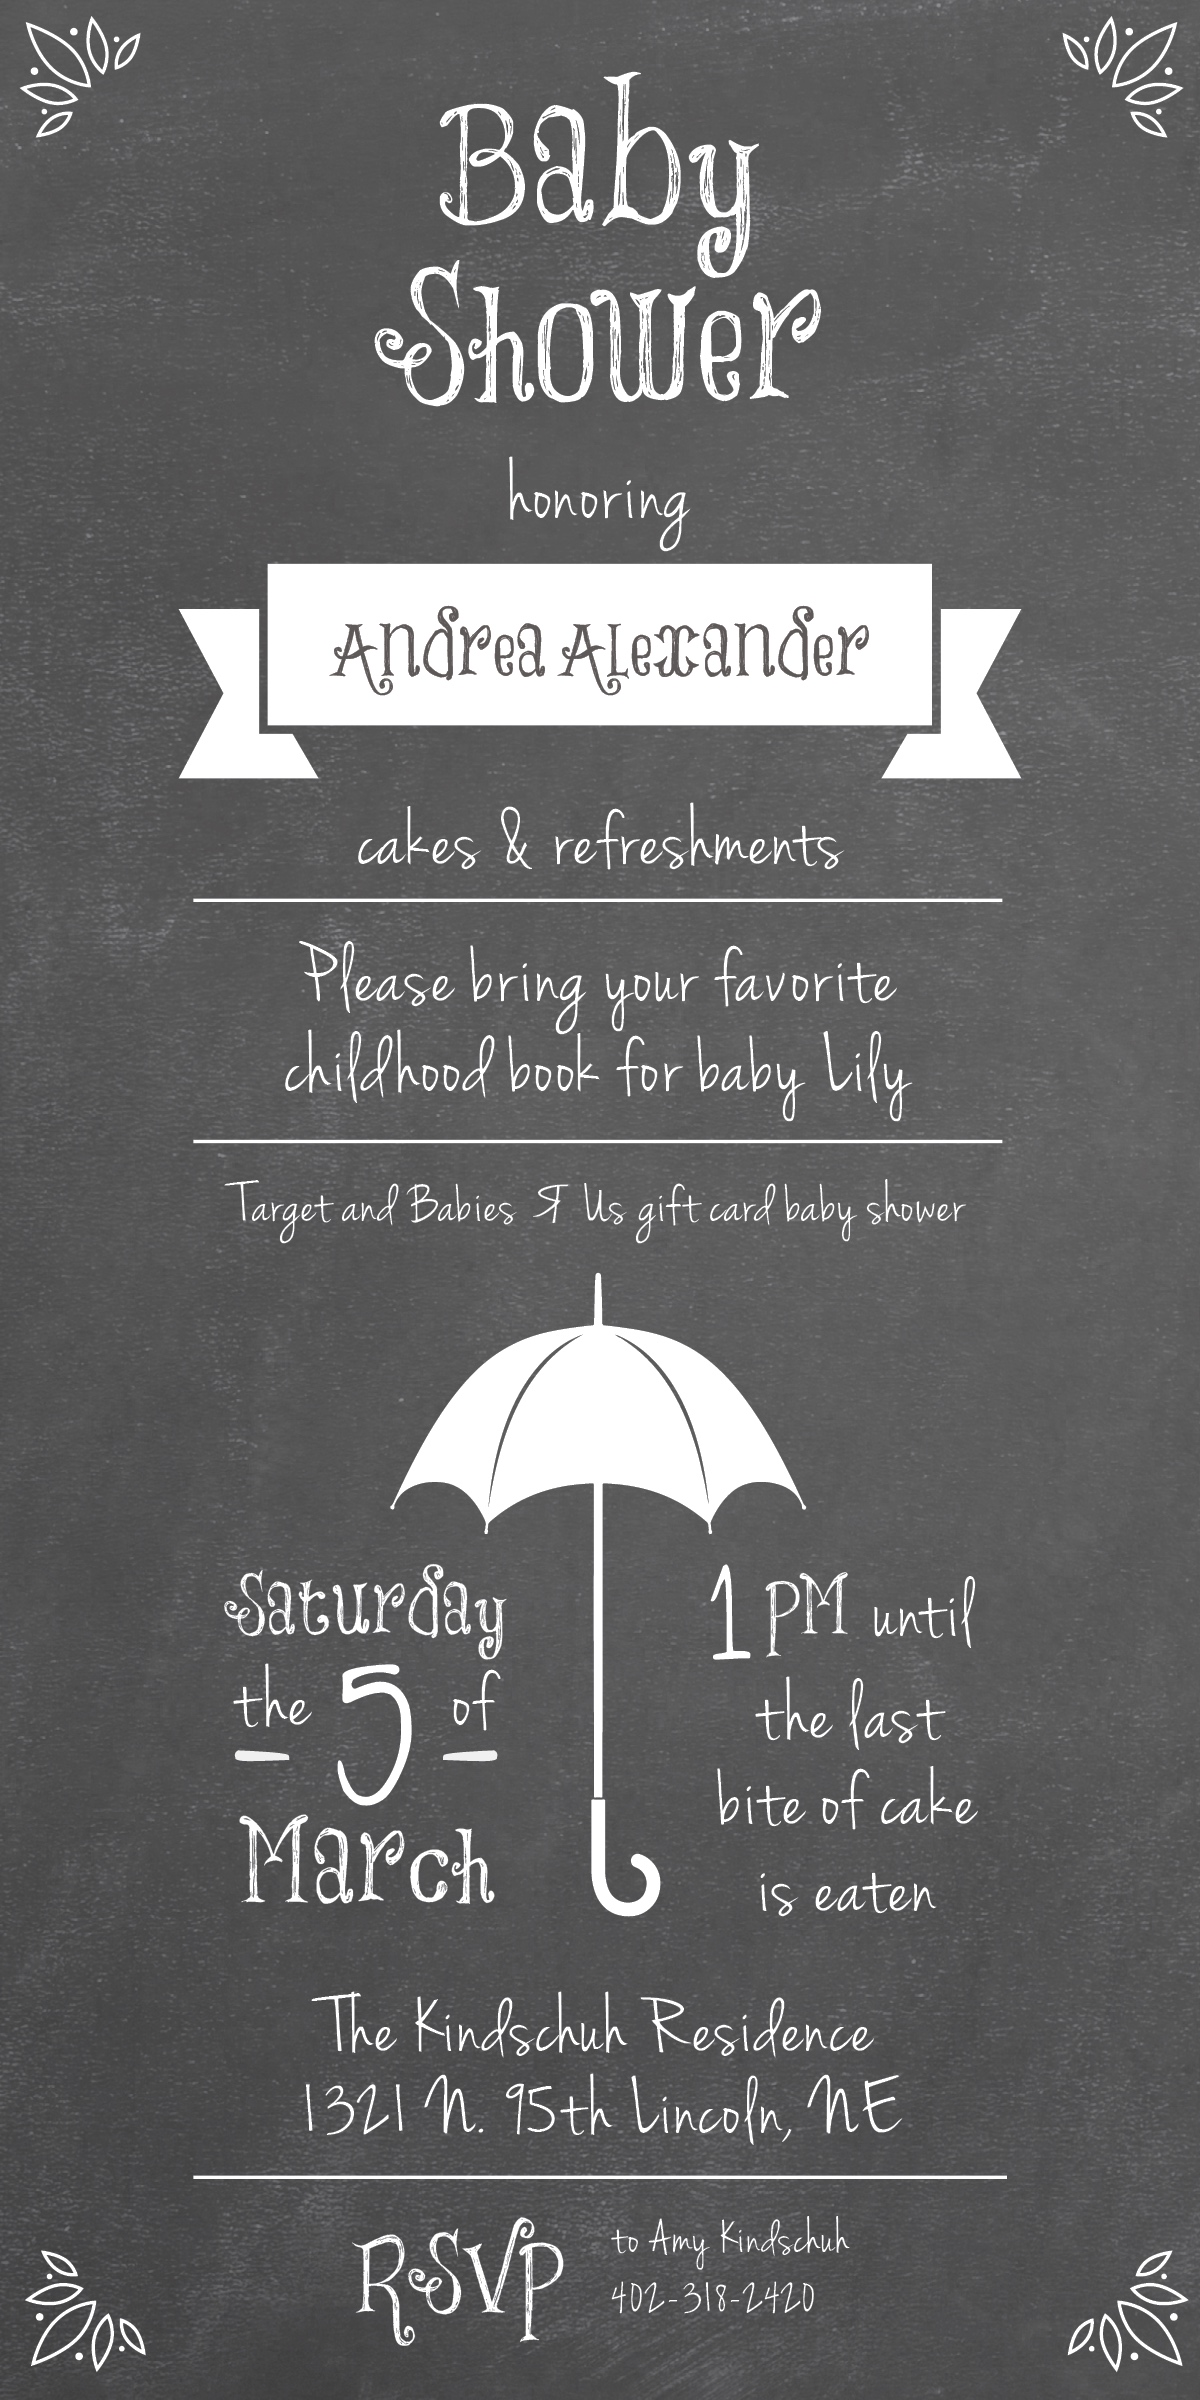 Baby
Shower
honoring
Andrea Alexander
cakes & refreshments
Please bring your favorite
childhood book for baby Lily
Target and Babies Я Us gift card baby shower
Saturday
the 5 of
March
1 PM until
the last
bite of cake
is eaten
The Kindschuh Residence
1321 N. 95th Lincoln, NE
RSVP
to Amy Kindschuh
402-318-2420